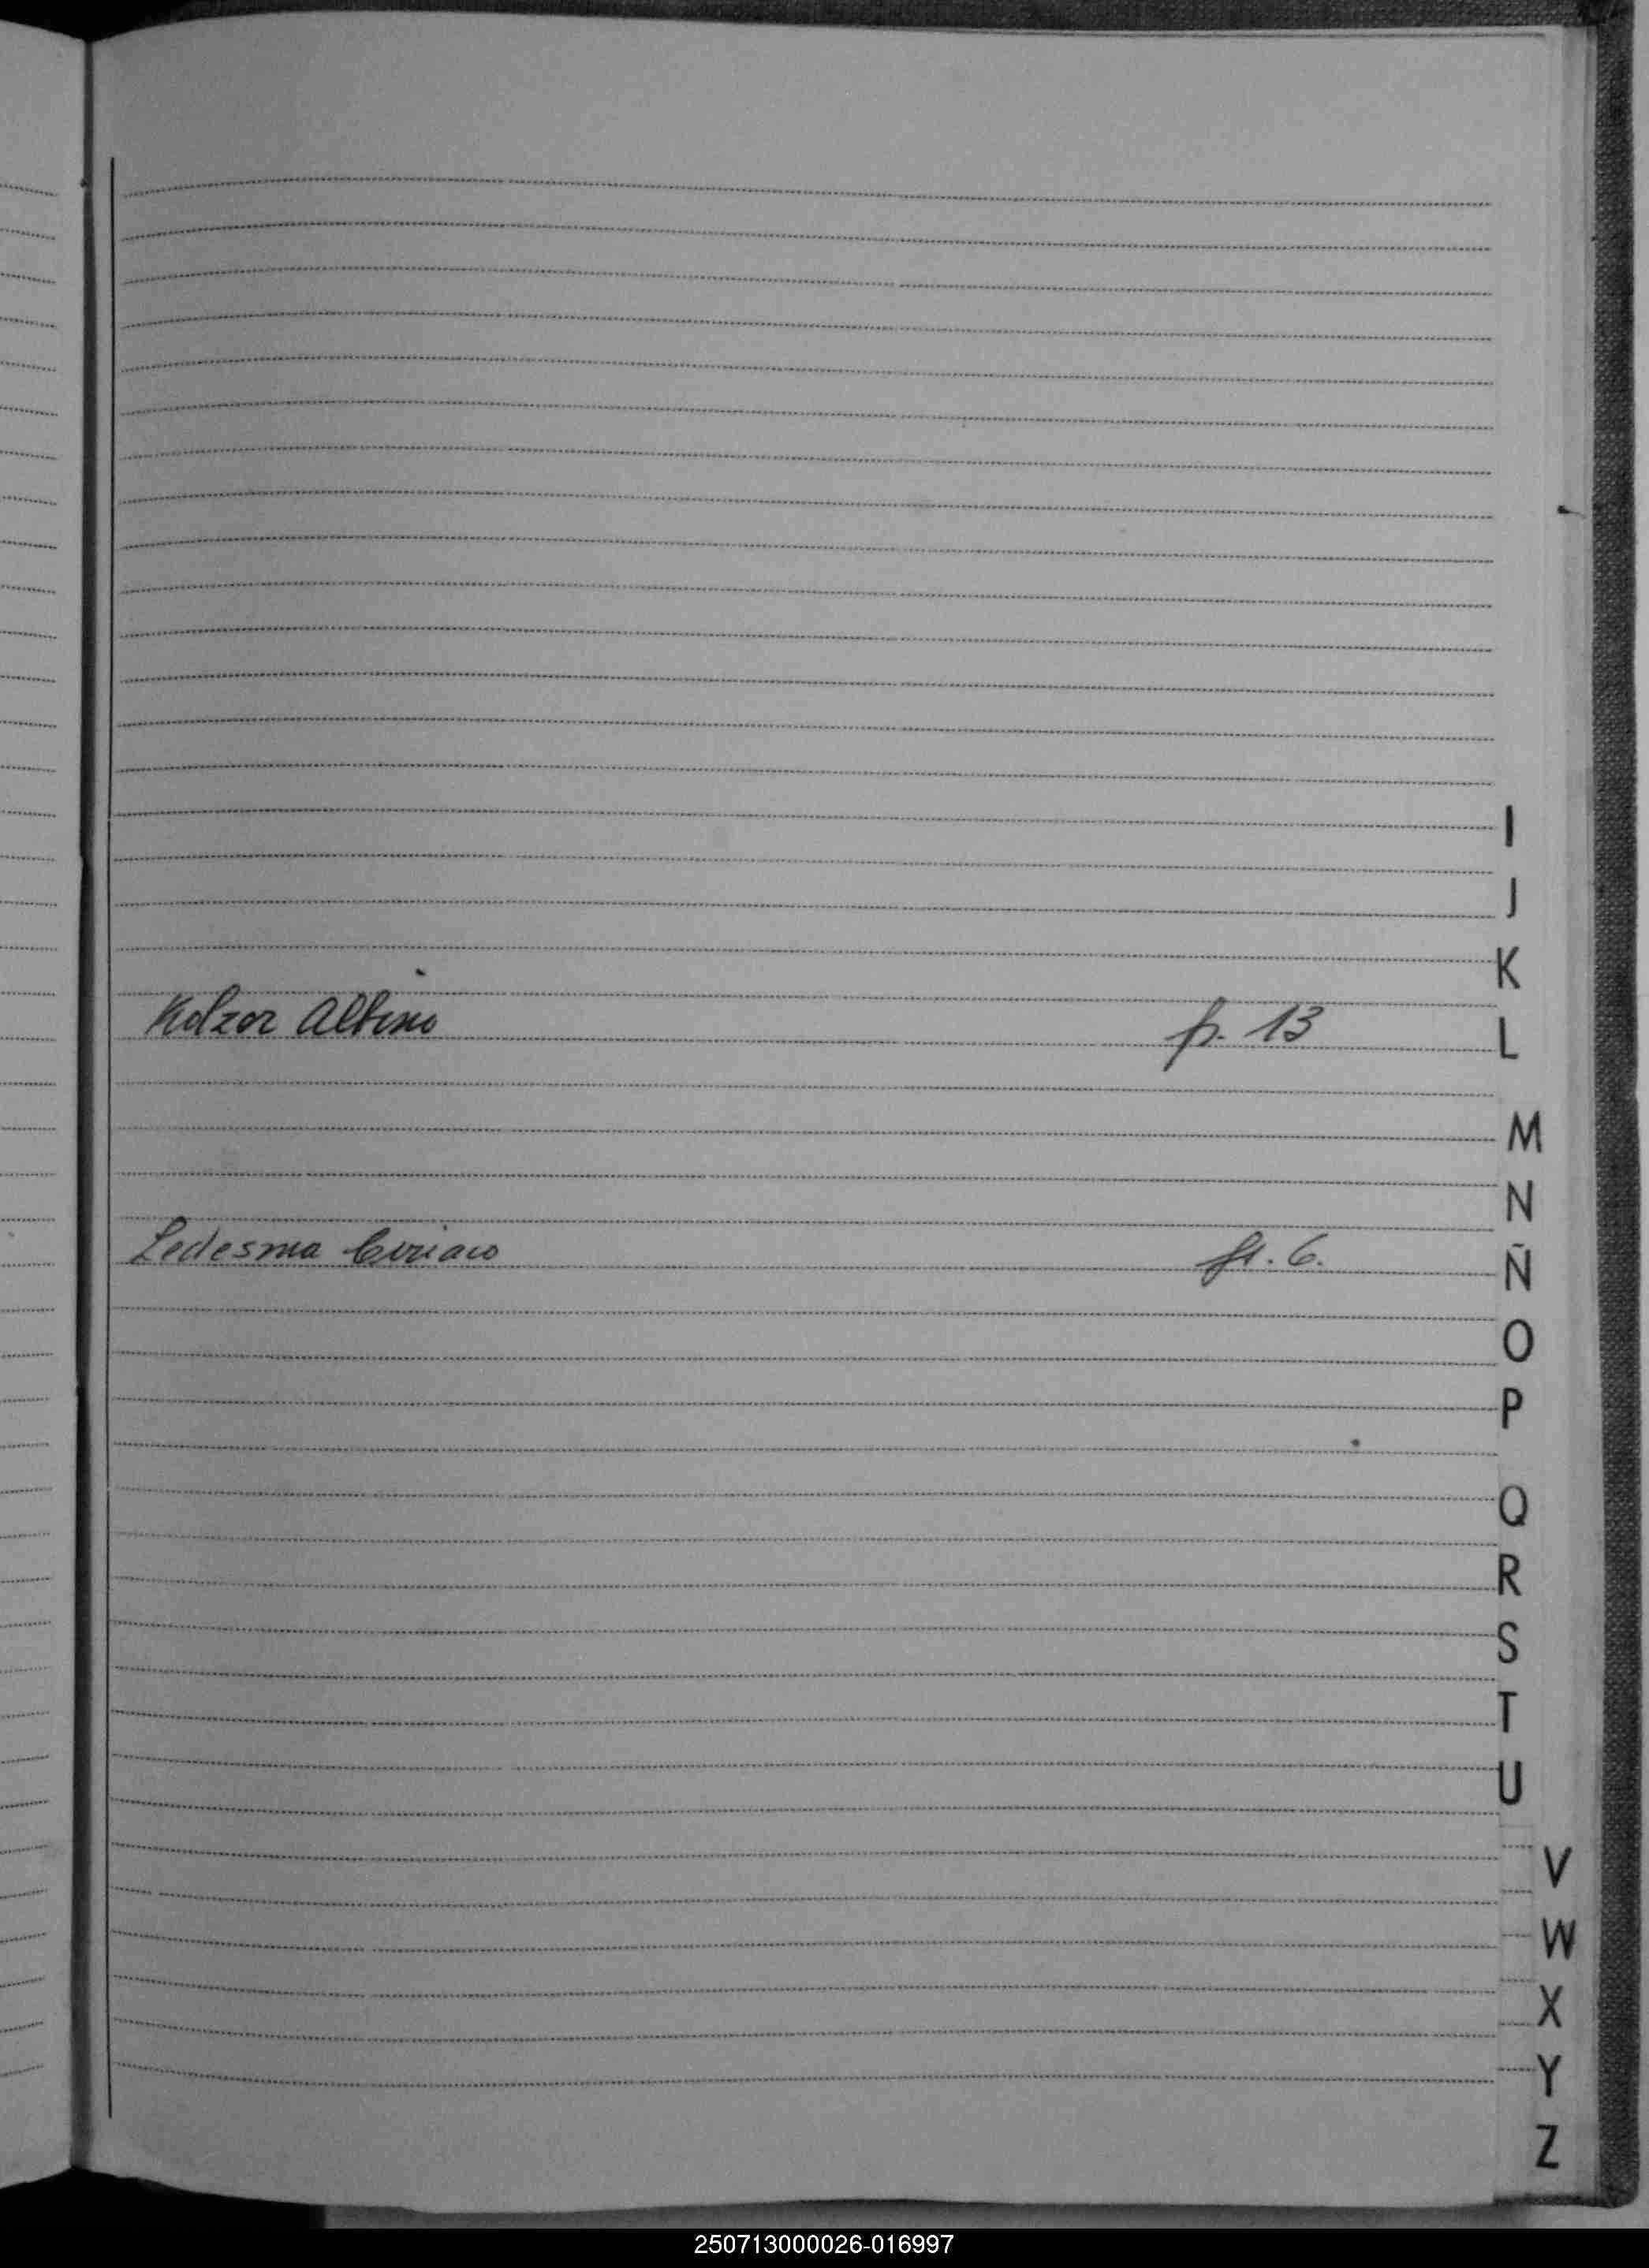 I
J
K
Kolzor Albino p. 13
L
M
N
Ledesma Ciriaco p. 6.
Ñ
O
P
Q
R
S
T
U
V
W
X
Y
Z
250713000026-016997